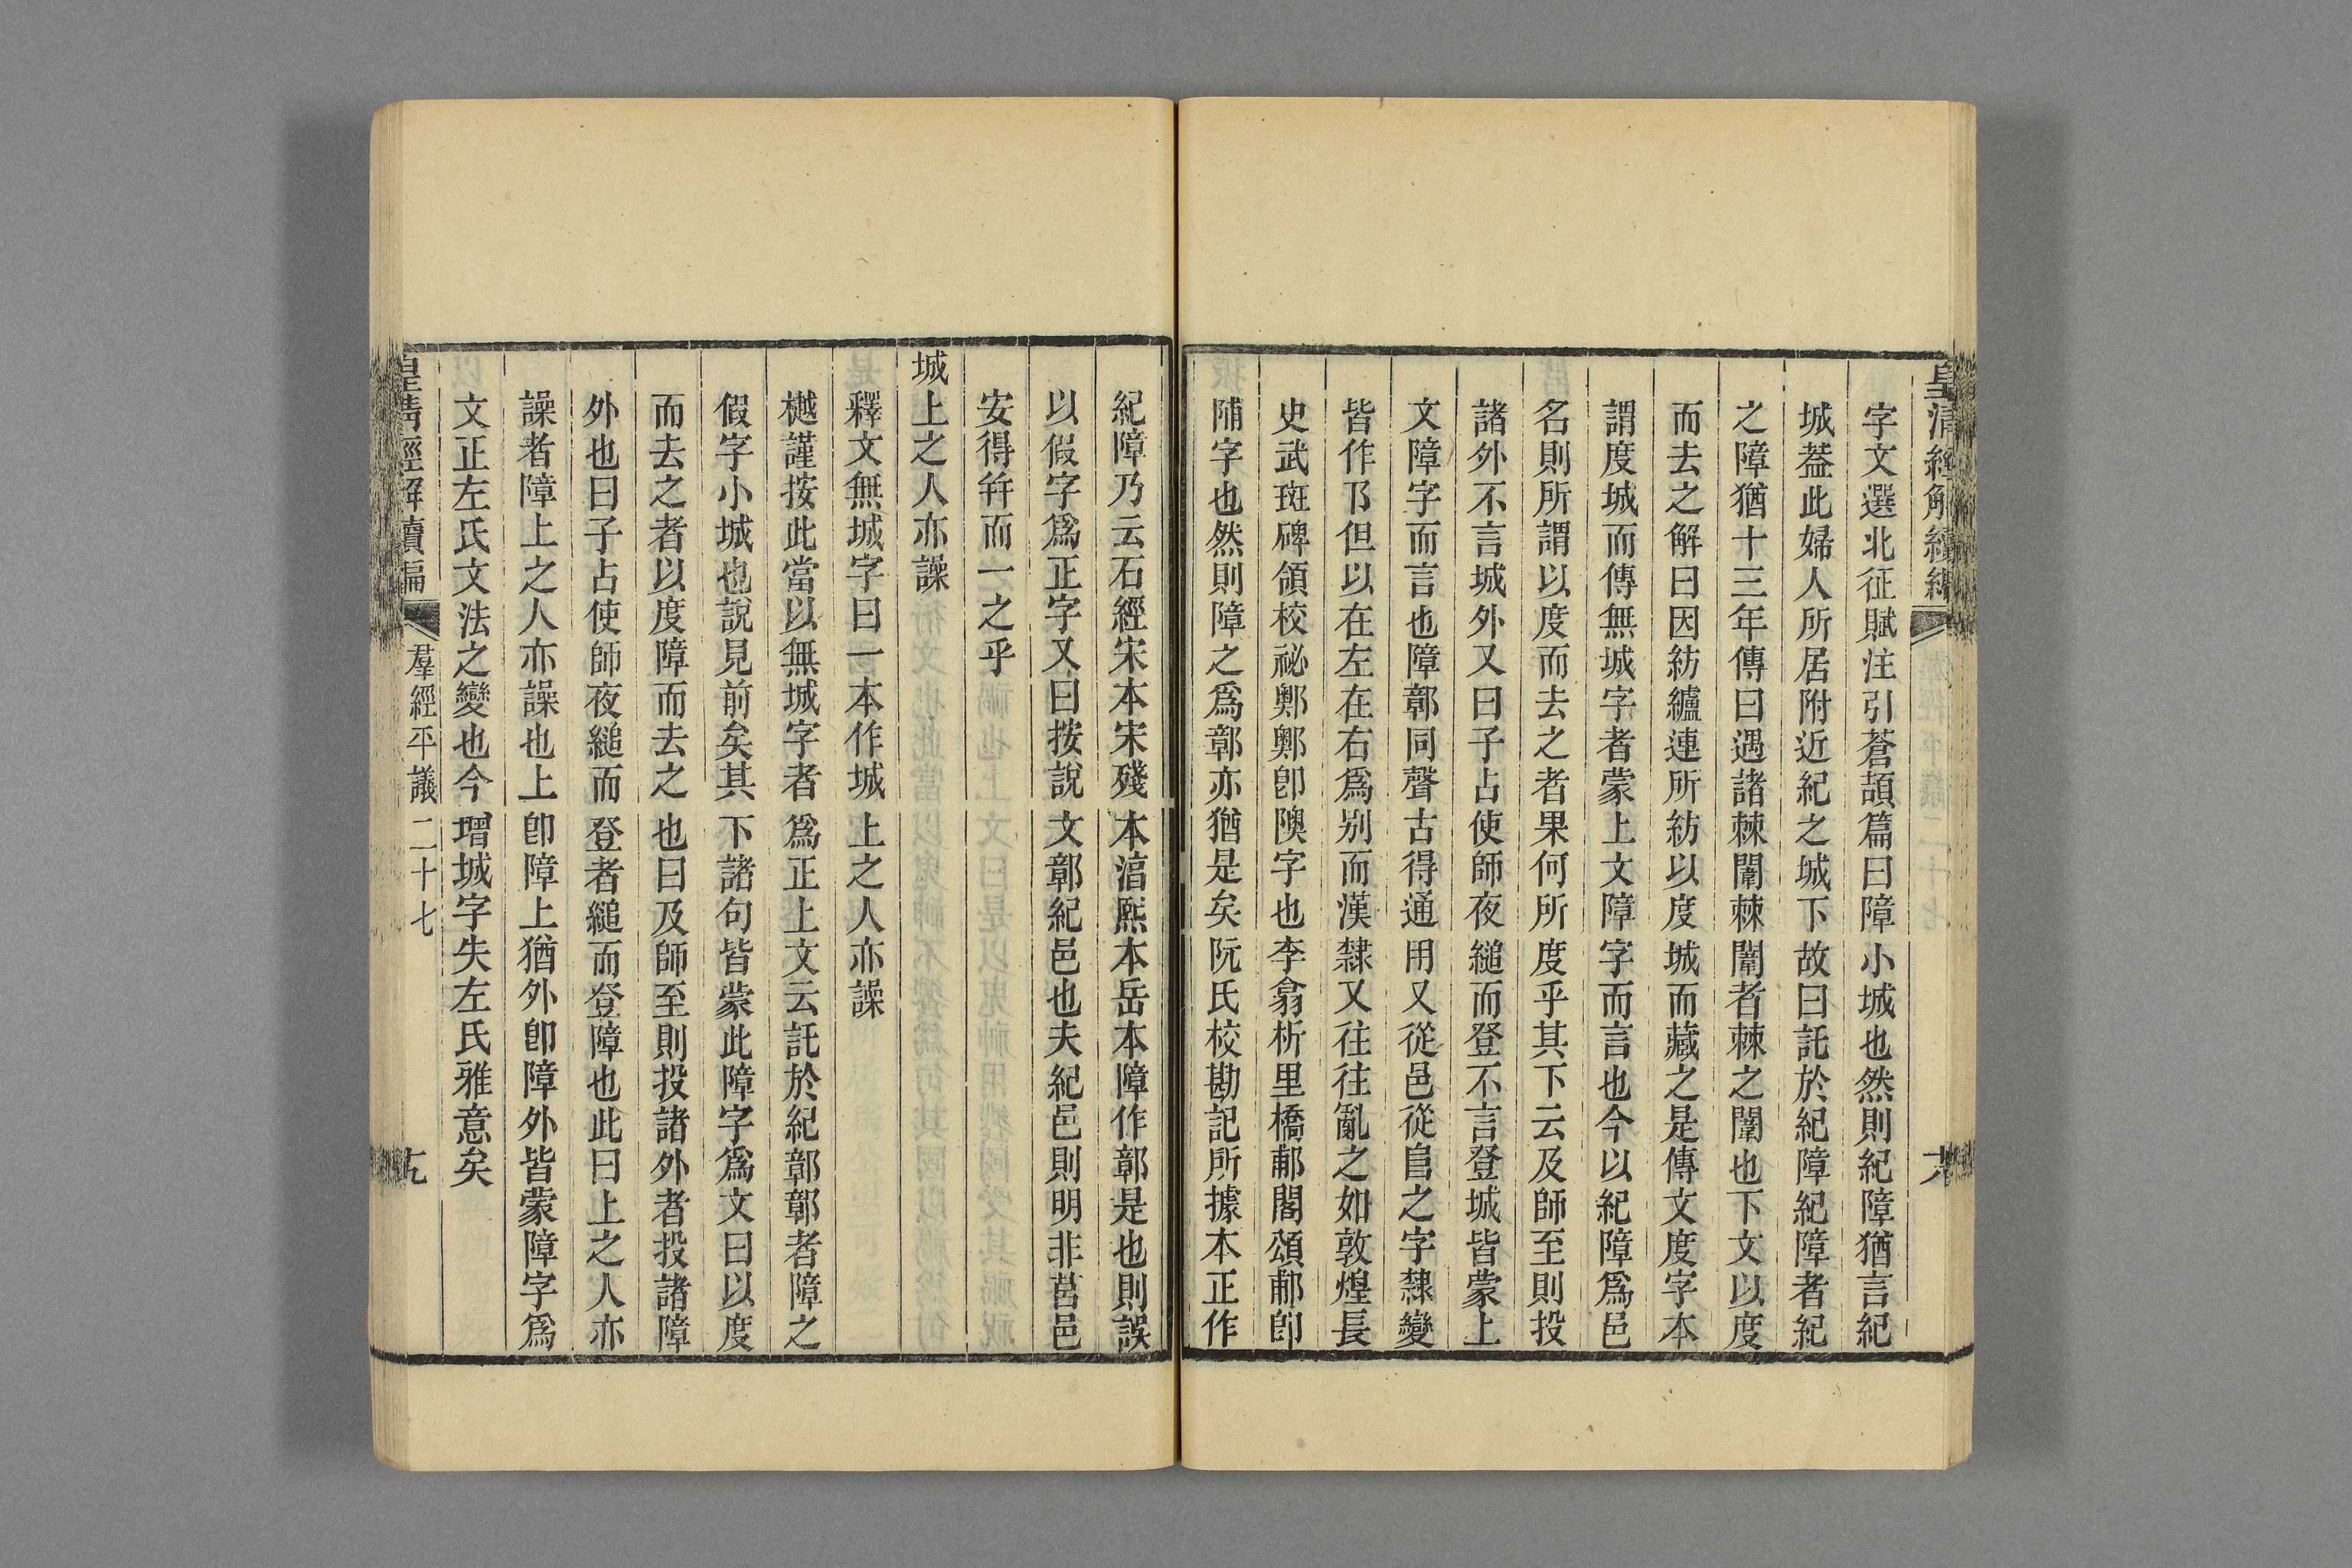 皇清經解續編
字文選北征賦注引蒼頡篇曰障小城也然則紀障猶言紀
城葢此婦人所居附近紀之城下故曰託於紀障紀障者紀
之障猶十三年傳曰遇諸棘闈棘闈者棘之闈也下文以度
而去之解曰因紡纑連所紡以度城而藏之是傳文度字本
謂度城而傳無城字者蒙上文障字而言也今以紀障爲邑
名則所謂以度而去之者果何所度乎其下云及師至則投
諸外不言城外又曰子占使師夜縋而登不言登城皆蒙上
文障字而言也障鄣同聲古得通用又從邑從𨸏之字隸變
皆作阝但以在左在右爲別而漢隸又往往亂之如敦煌長
史武斑碑領校祕鄭鄭卽隩字也李翕析里橋郙閣頌郙卽
陠字也然則障之爲鄣亦猶是矣阮氏校勘記所據本正作
紀障乃云石經宋本宋殘本淳熙本岳本障作鄣是也則誤
以假字爲正字又曰按說文鄣紀邑也夫紀邑則明非莒邑
安得幷而一之乎
城上之人亦譟
釋文無城字曰一本作城上之人亦譟
樾謹按此當以無城字者爲正上文云託於紀鄣鄣者障之
假字小城也說見前矣其下諸句皆蒙此障字爲文曰以度
而去之者以度障而去之也曰及師至則投諸外者投諸障
外也曰子占使師夜縋而登者縋而登障也此曰上之人亦
譟者障上之人亦譟也上卽障上猶外卽障外皆蒙障字爲
文正左氏文法之變也今增城字失左氏雅意矣
皇清經解續編
羣經平議二十七